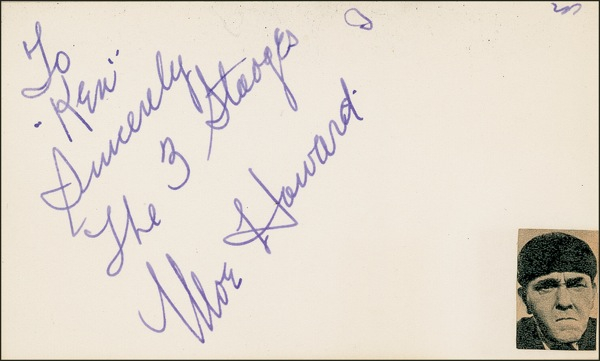 To
"Ken"
Sincerely
The 3 Stooges
Moe Howard